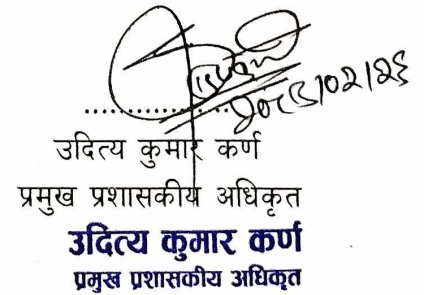 २०८३/०२/२६
उदित्य कुमार कर्ण
प्रमुख प्रशासकीय अधिकृत
उदित्य कुमार कर्ण
प्रमुख प्रशासकीय अधिकृत